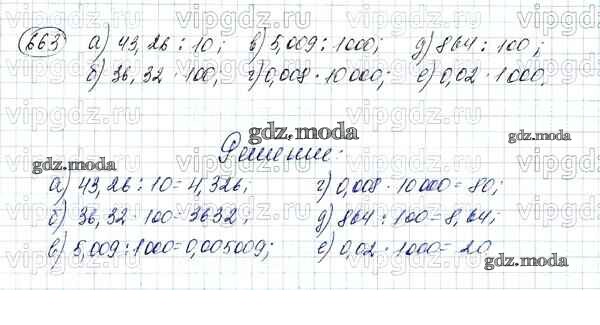 663 а) 43,26 : 10; в) 5,009 : 1000; д) 864 : 100;
б) 36,32 · 100; г) 0,008 · 10000; е) 0,02 · 1000.
gdz.moda
Решение:
gdz.moda
gdz.moda
а) 43,26 : 10 = 4,326; г) 0,008 · 10000 = 80;
б) 36,32 · 100 = 3632; д) 864 : 100 = 8,64;
в) 5,009 : 1000 = 0,005009; е) 0,02 · 1000 = 20
gdz.moda
vipgdz.ru